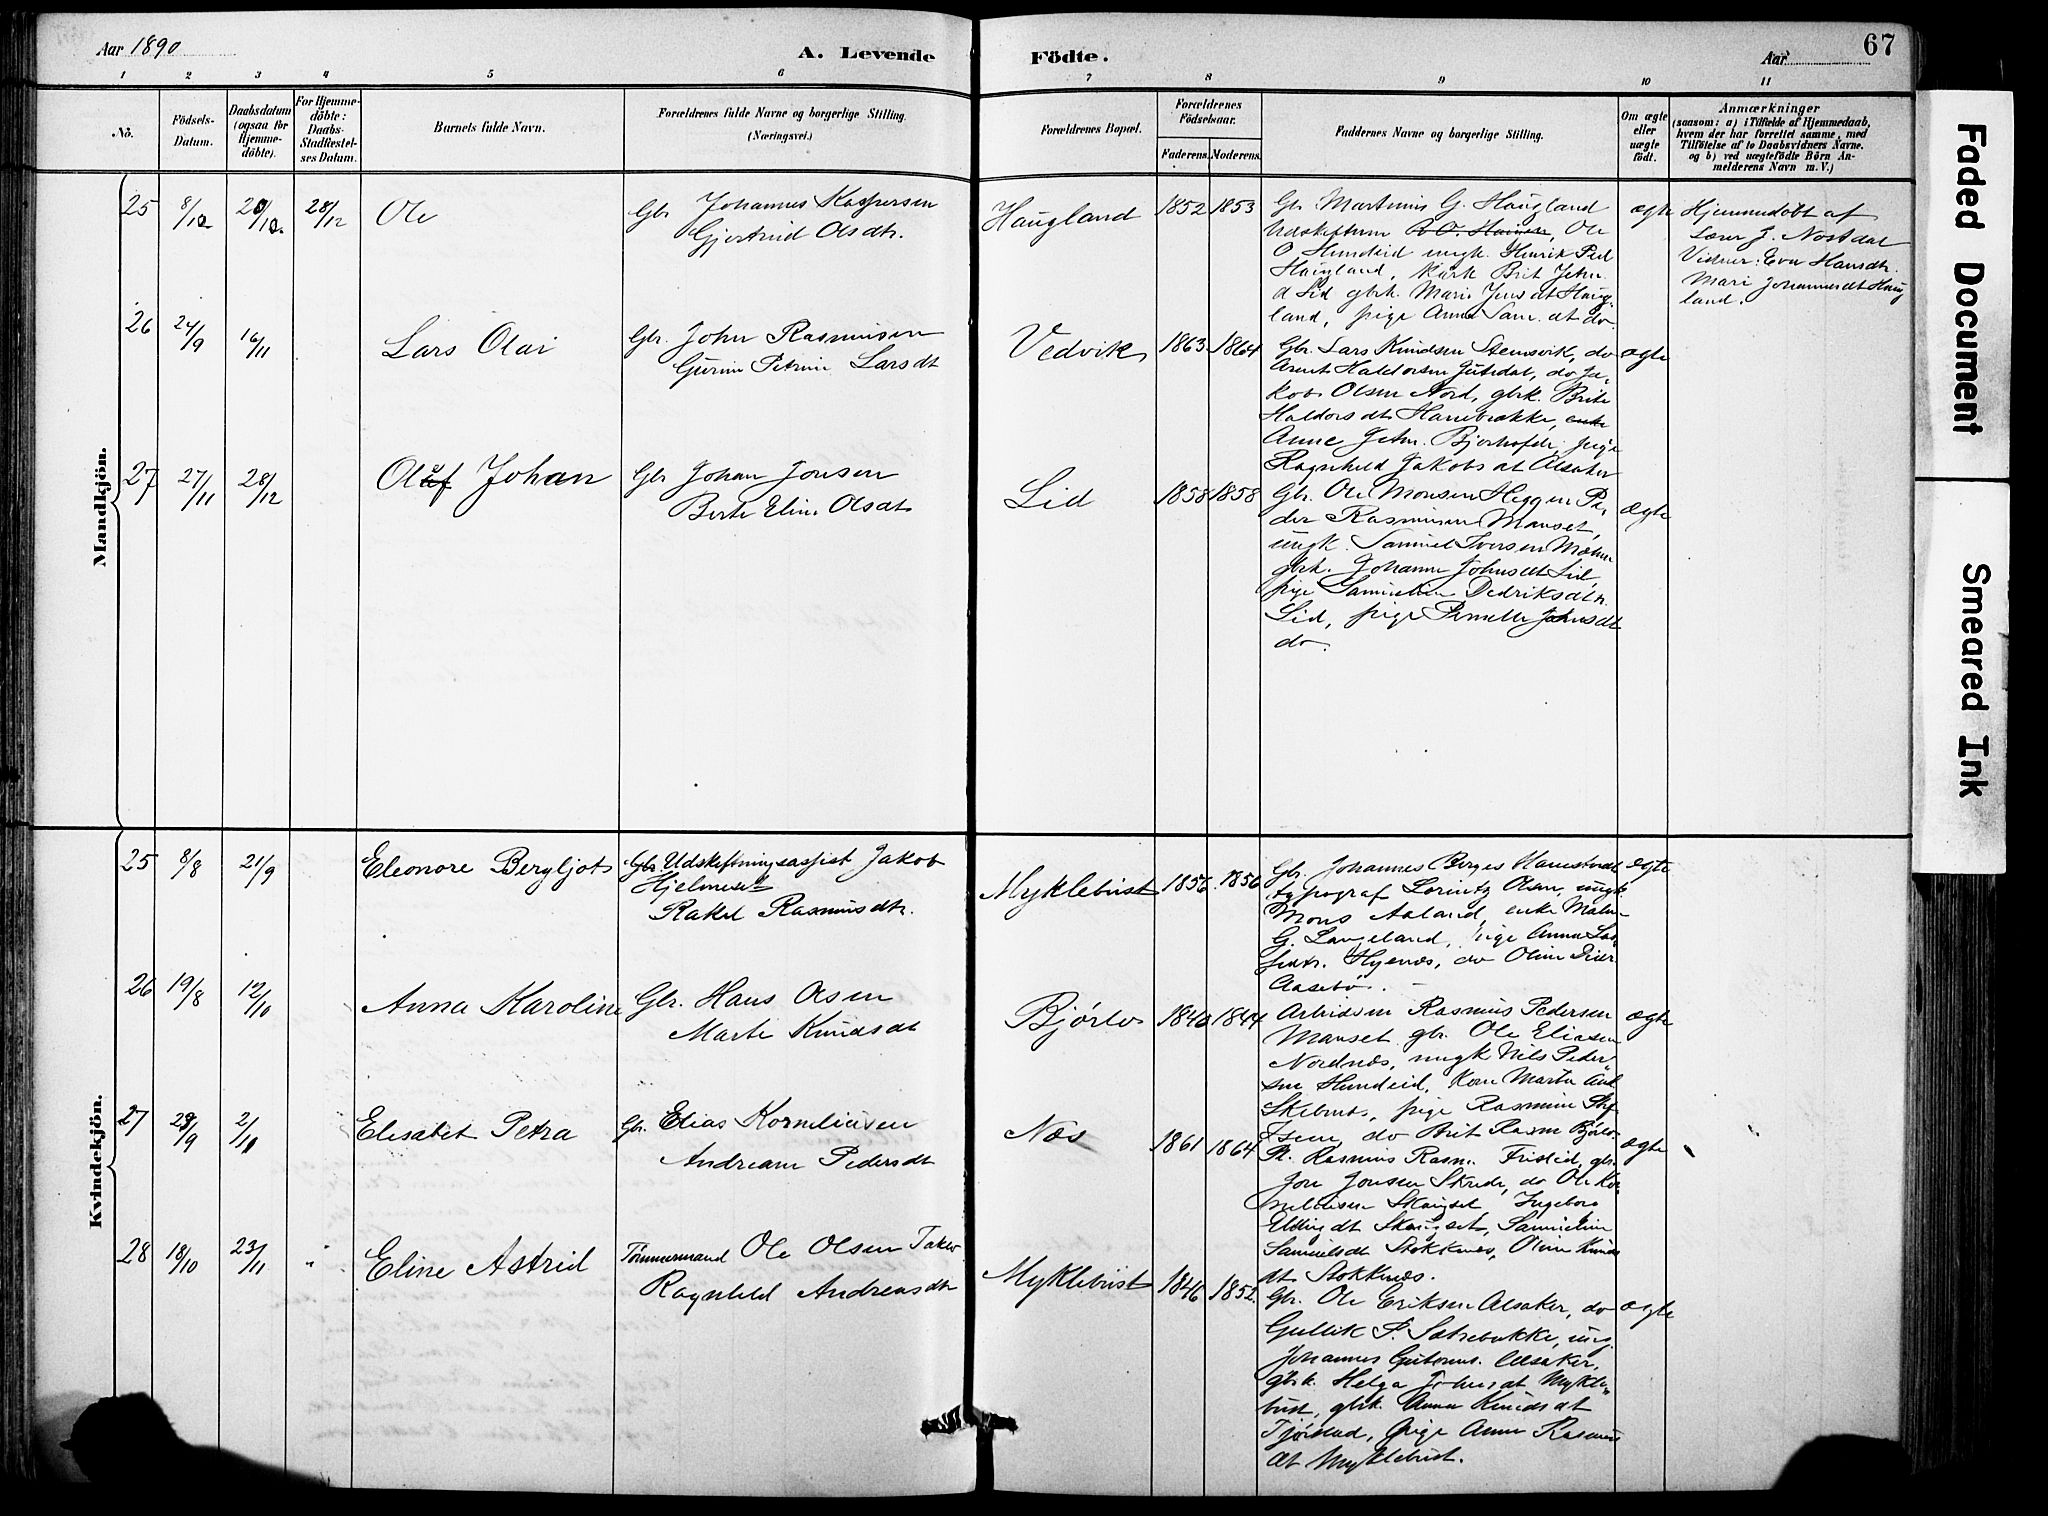 Aar 1890
A. Levende
Födte.
Aar
67
1 2 3 4 5 6 7 8 9 10 11
Nö.
Födsels-
Datum.
Daabsdatum
(ogsaa for
Hjemme-
döbte).
For Hjemme-
döbte:
Daabs-
Stadfæstel-
ses Datum.
Barnets fulde Navn.
Forældrenes fulde Navne og borgerlige Stilling.
(Næringsvei.)
Forældrenes Bopæl.
Forældrenes
Födselsaar.
Faderens. Moderens.
Faddernes Navne og borgerlige Stilling.
Om ægte
eller
uægte
födt.
Anmærkninger
(saasom: a) i Tilfælde af Hjemmedaab,
hvem der har forrettet samme, med
Tilföielse af to Daabsvidners Navne.
og b) ved uægtefödte Börn An-
melderens Navn m. V.)
Mandkjön.
25 8/12 20/12 28/12 Ole
Gbr Johannes Kaspersen
Gjertrud Olsdtr.
Haugland 1852 1853
Gb. Martinus G. Haugland
Ole
O Hundeid ungk. Henrik Ped
Haugland, Brit Jetm.
d Lid gbrk. Marie Jensdt Haug
land, pige Anna Sam. dt do.
ægte
Hjemmedöbt af
Lærer J. Nostdal
Vidner: Eva Hansdtr.
Mari Johannesdt Haug
land.
26 24/9 16/11 Lars Olai
Gbr. John Rasmusen
Gurine Petrine Larsdt
Vedvik 1863 1864
Gbr. Lars Knudsen Stemsvik, do
Arent Haldorsen Jutedal, do Ja-
kob Olsen Nord, gbrk. Brite
Haldorsdt Hannebrække, enke
Anne Jetm. pige
Ragnhild Jakobsdt Alsaker
ægte
27 27/11 28/12 Oluf Johan
Gbr Johan Jonsen
Berte Eline Olsdt
Lid 1858 1858
Gbr. Ole Monsen Heggen Pe-
der Rasmusen Manset,
ungk. Samuel Iversen Mæhn
gbrk. Johanne Johnsdt Lid,
pige Samueline Dedriksdtr.
Lid, pige Pernelle Johnsdt
do.
ægte
Kvindekjön.
25 8/8 21/9 Eleonore Bergljot
Gbr. Udskiftningsassist Jakob
Hjelmeset
Rakel Rasmusdtr.
Myklebust 1856 1856
Gbr. Johannes Berges
typograf Lorintz Olsen, ungk.
Mons Aaland, enke Malen
G. Langeland, pige Anna
Hyenes, do Oline
Aasebö.
ægte
26 19/8 12/10 Anna Karoline
Gbr. Hans Olsen
Marte Knudsdt
Bjórlo 1840 1844
Arbeidsm Rasmus Pedersen
Manset gbr. Ole Eliasen
Nordnæs, ungk Nils Peder
sen Hundeid, Kone Marta
pige Rasmine
do Brit Rasm Bjórlo
ægte
27 28/9 2/10 Elisabet Petra
Gb. Elias Korneliusen
Andreane Pedersdt
Næs 1861 1864
Rasmus Rasm. gbr.
Jon Jonsen do Ole Kor
neliusen Skauset Ingeborg
Skauset, Samueline
Samuelsdt Stokknæs, Oline Knuds
dt Stokknæs.
ægte
28 18/10 23/11 Eline Astrid
Tömmermand Ole Olsen Taklo
Ragnhild Andreasdtr
Myklebust 1846 1852
Gbr. Ole Eriksen Alsaker, do
Gullik P. Sætrebakke, ung
Johannes Guttorms. Alsaker,
gbrk. Helga Johnsdt Mykle-
bust, gbrk. Anna Knudsdt
Tjórstad, pige Anne Rasmus
dt Myklebust.
ægte
Faded Document
Smeared Ink